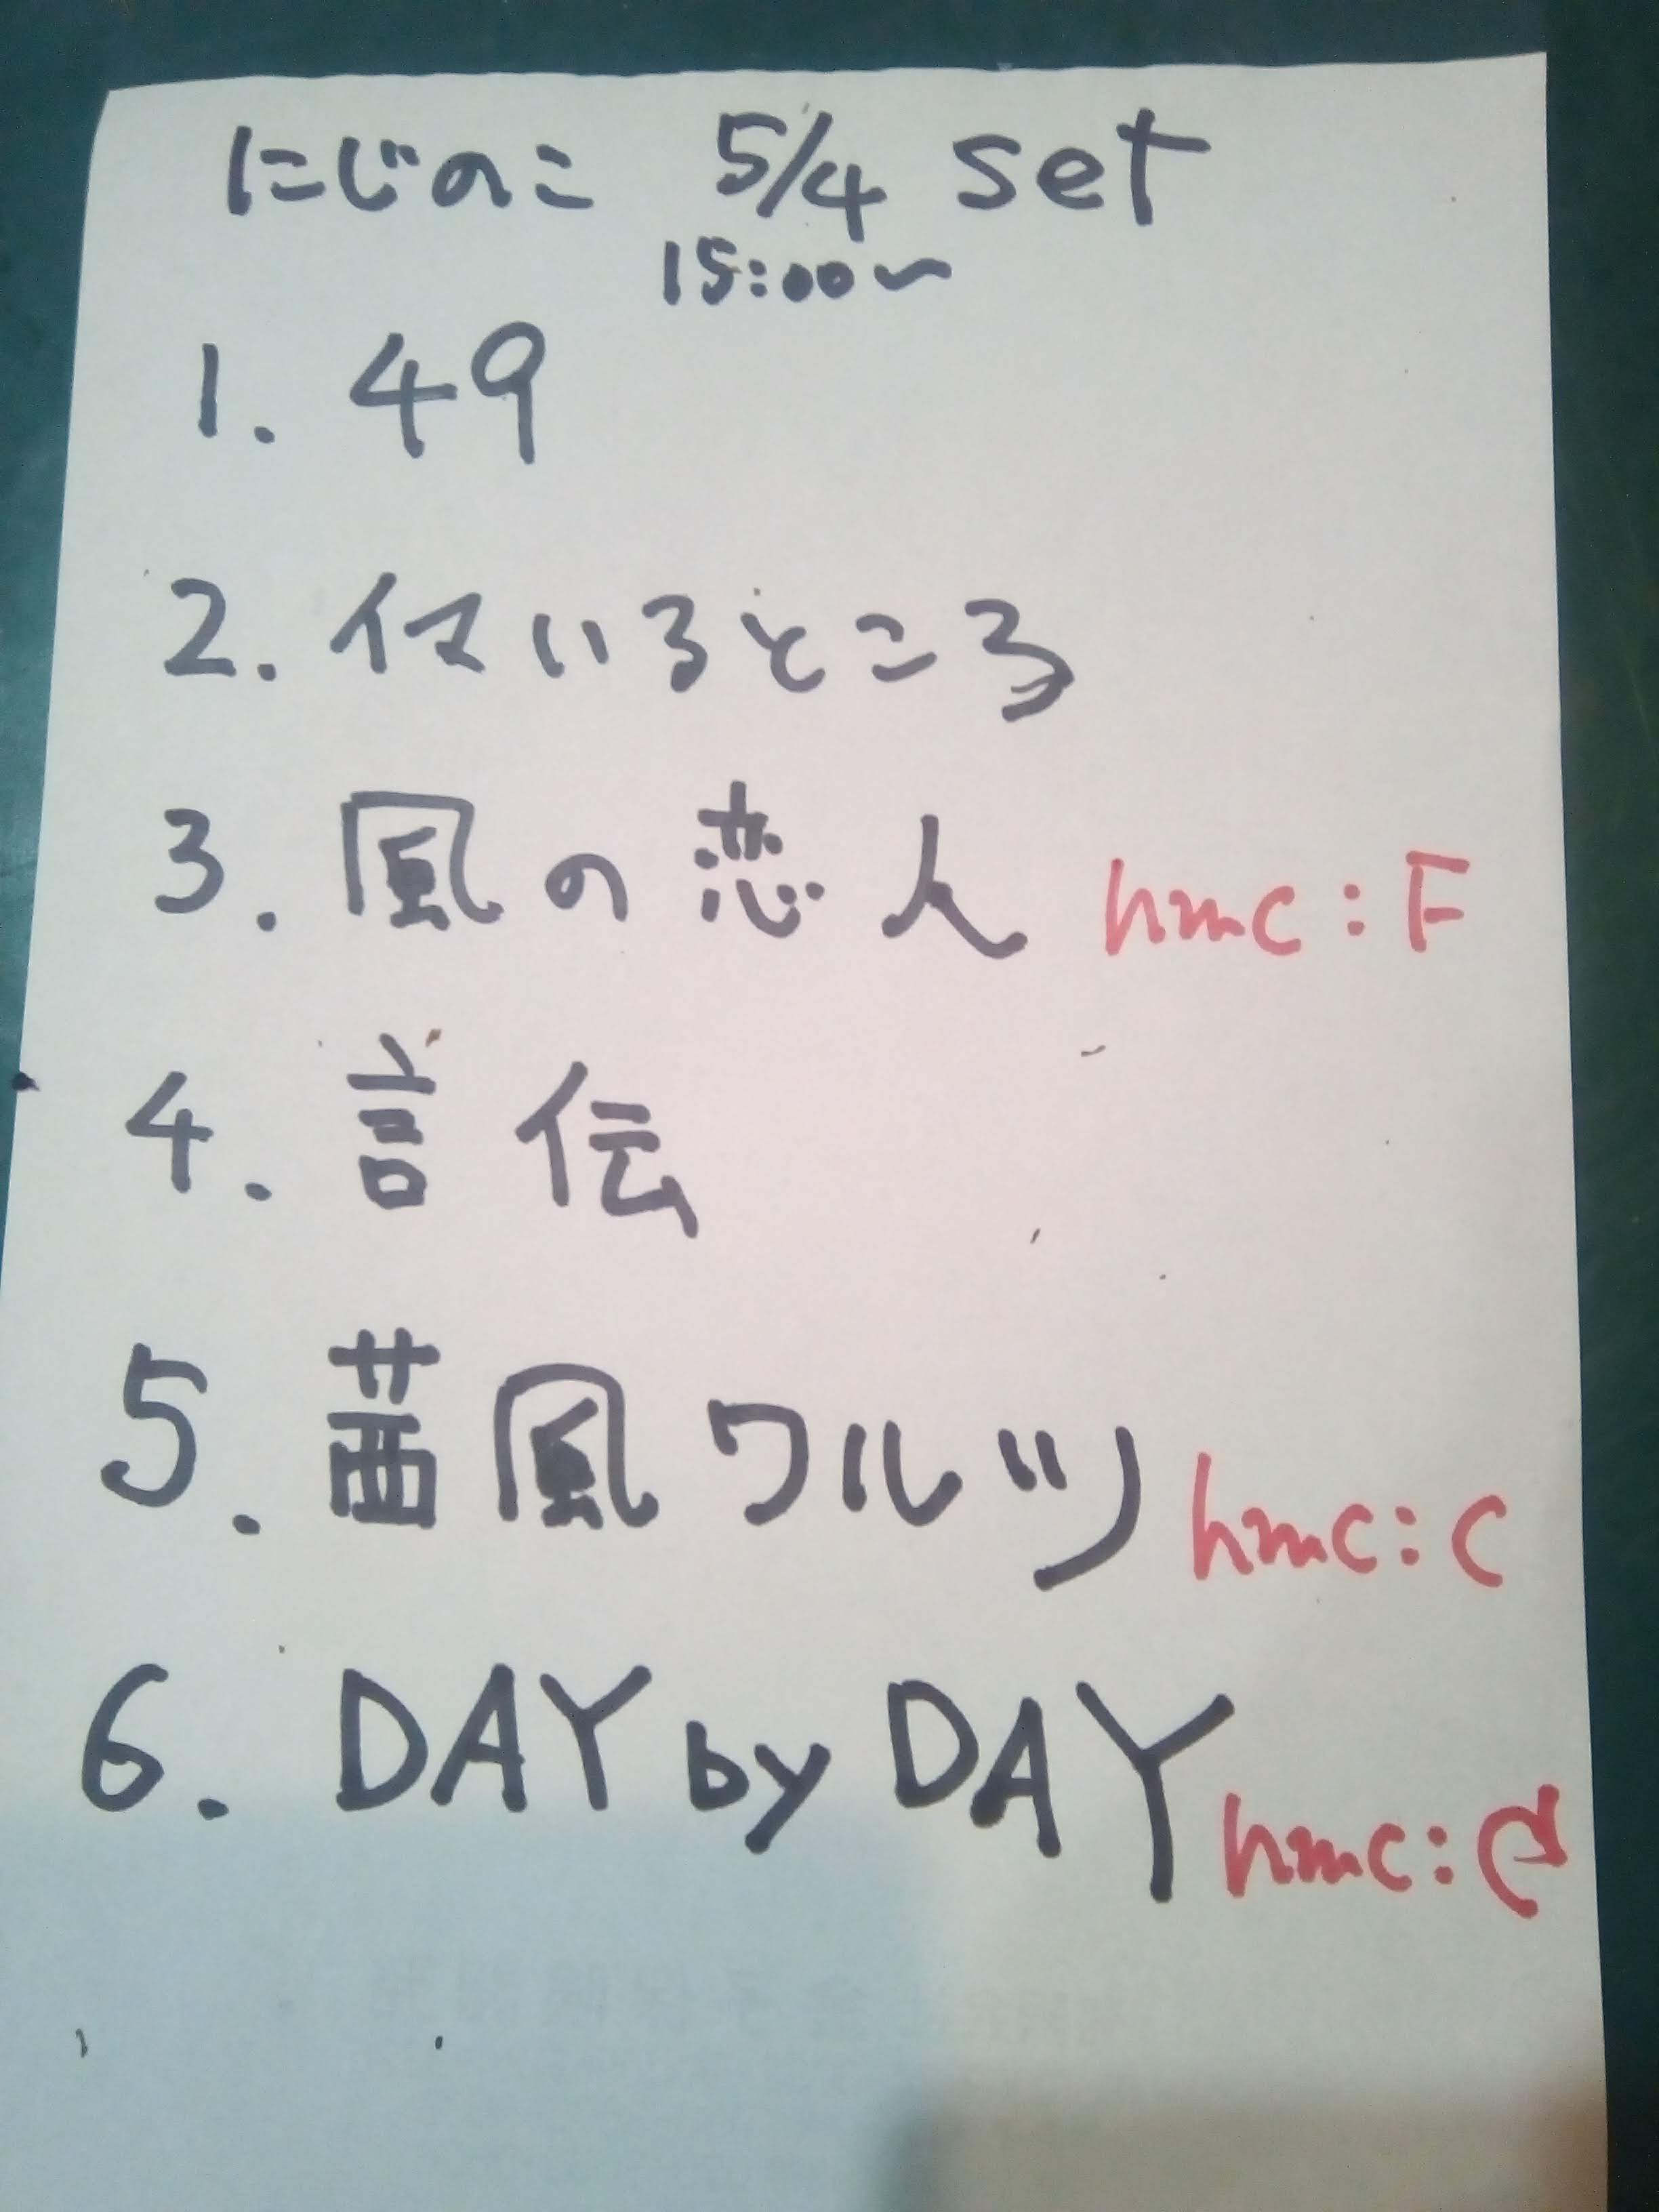 にじのこ 5/4 set
15:00〜
1. 49
2. イマいるところ
3. 風の恋人 hmc:F
4. 言伝
5. 茜風ワルツ hmc:C
6. DAY by DAY hmc: